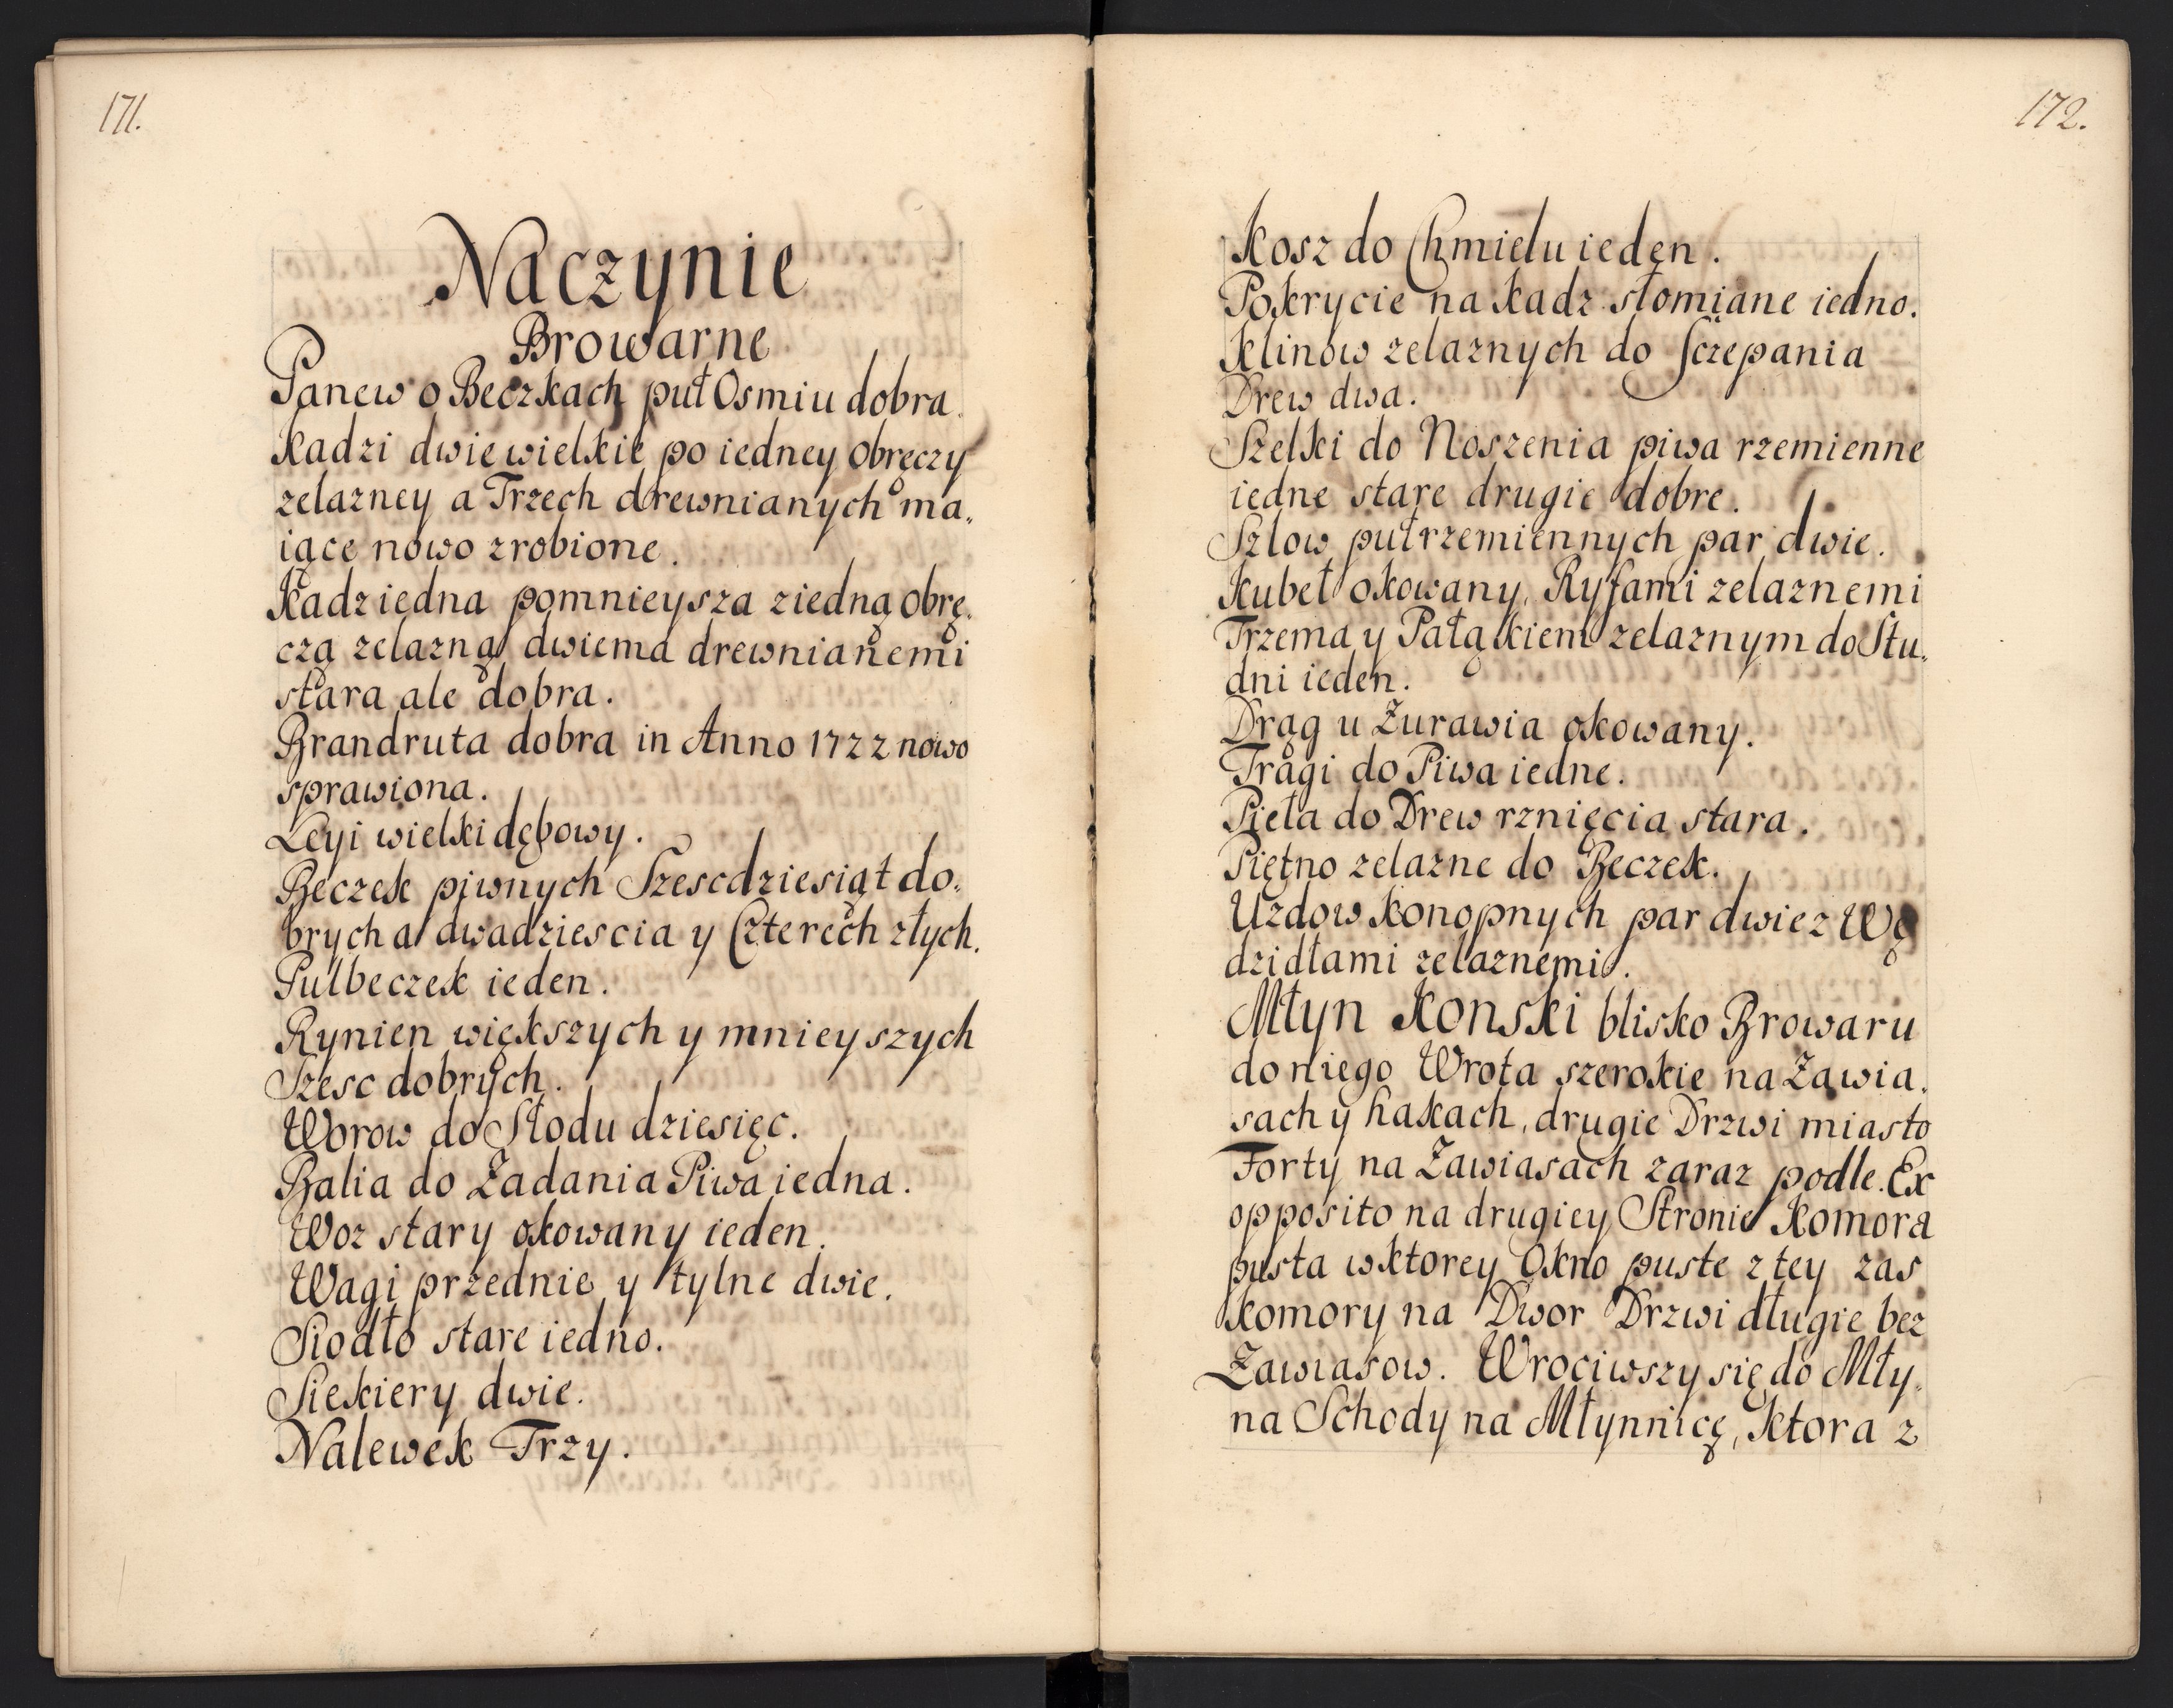 171.
Naczynie
Browarne
Panew o Beczkach puł Osmiu dobra.
Kadzi dwie wielkie po iedney Obręczy
zelazney a Trzech drewnianych ma„
iące nowo zrobione.
Kadz iedna pomnieysza z iedną Obrę„
czą zelazną dwiema drewnianemi
stara ale dobra.
Brandruta dobra in Anno 1722 nowo
sprawiona.
Leyi wielki dębowy.
Beczek piwnych Szescdziesiąt do„
brych a dwadziescia y Czterech złych.
Pulbeczek ieden.
Rynien większych y mnieyszych
Szesc dobrych.
Worow do Słodu dziesięc.
Balia do Zadania Piwa iedna.
Woz stary okowany ieden.
Wagi przednie y tylne dwie.
Siodło stare iedno.
Siekiery dwie.
Nalewek Trzy.
172.
Kosz do Chmielu ieden.
Pokrycie na Kadz słomiane iedno.
Klinow zelaznych do Sczepania
Drew dwa.
Szelki do Noszenia piwa rzemienne
iedne stare drugie dobre.
Szlow puł rzemiennych par dwie.
Kubeł okowany, Ryfami zelaznemi
Trzema y Pałąkiem zelaznym do Stu„
dni ieden.
Drąg u Zurawia okowany.
Tragi do Piwa iedne.
Pieła do Drew rznięcia stara.
Piętno zelazne do Beczek.
Uzdow Konopnych par dwie z Wę
dzidłami zelaznemi.
Młyn Konski blisko Browaru
do niego Wrota szerokie na Zawia„
sach y hakach, drugie Drzwi miasto
Forty na Zawiasach zaraz podle. Ex
opposito na drugiey Stronie Komora
pusta w ktorey Okno puste z tey zas
Komory na Dwor Drzwi długie bez
Zawiasow. Wrociwszy się do Mły„
na Schody na Młynnicę, Ktora z